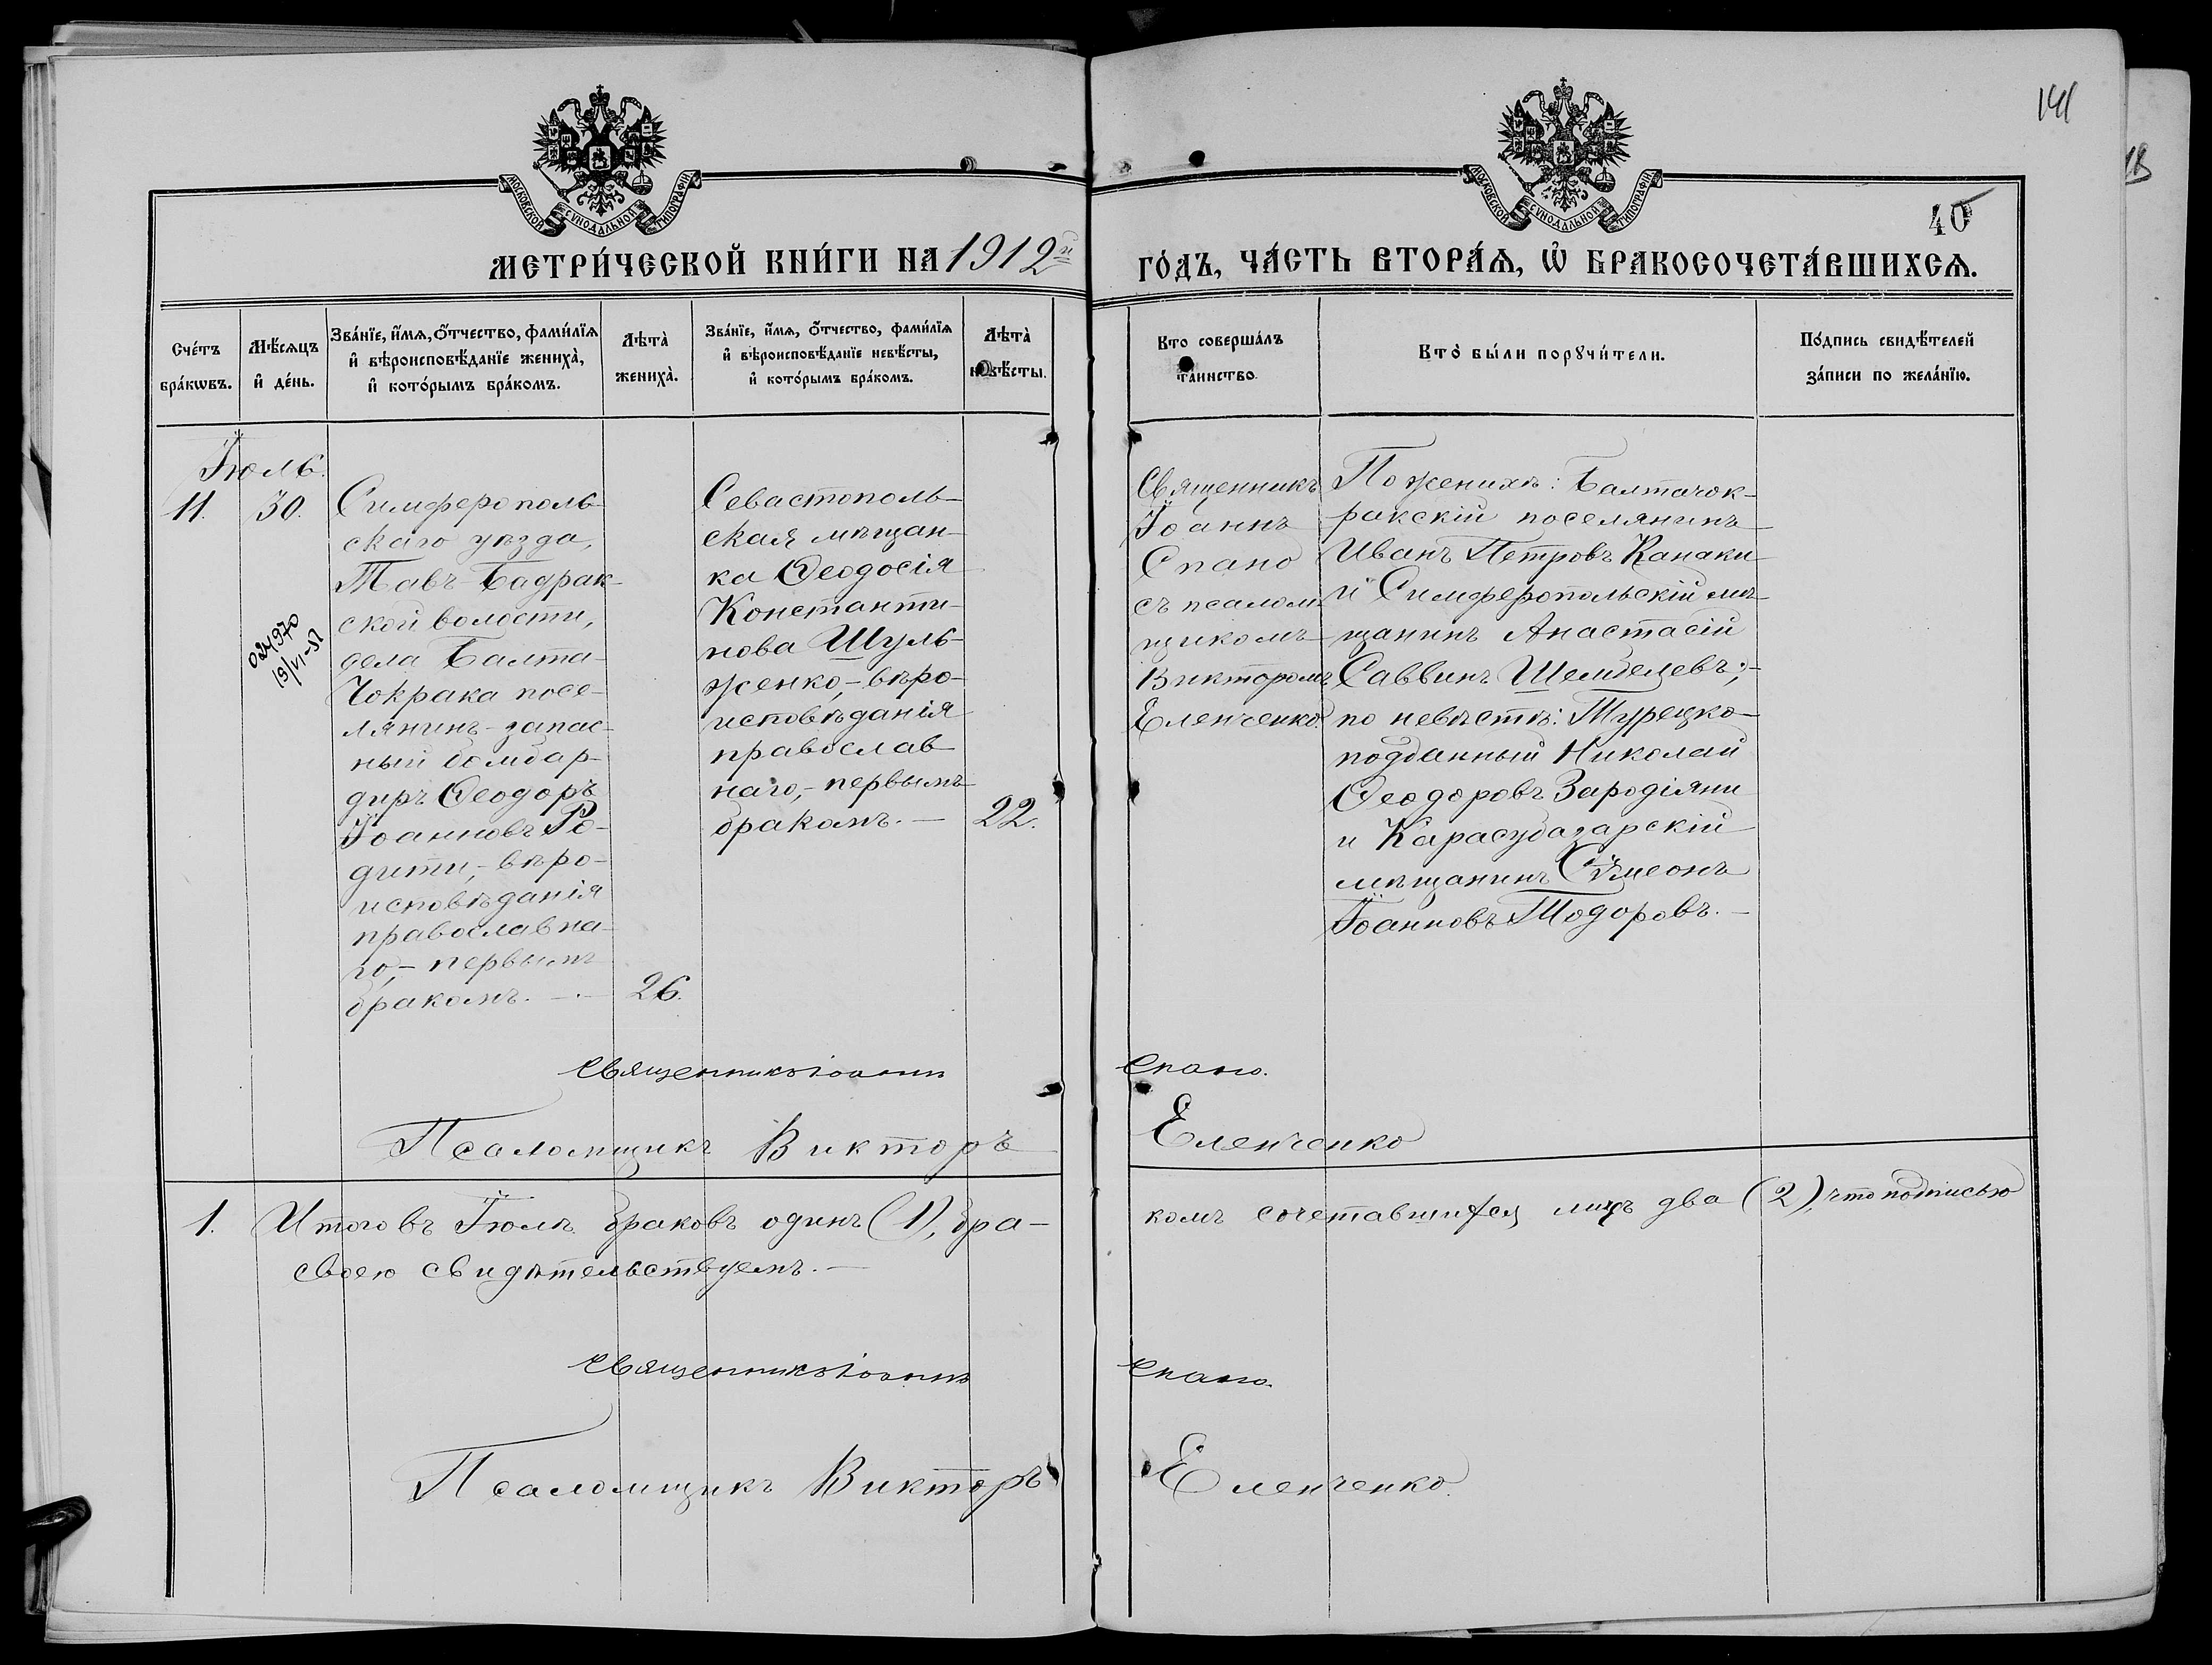 141
18
МОСКОВСКОЙ СѴНОДАЛЬНОЙ ТИПОГРАФІИ
МОСКОВСКОЙ СѴНОДАЛЬНОЙ ТИПОГРАФІИ
40
МЕТРИ́ЧЕСКОЙ КНИ́ГИ НА 1912й
ГО́ДЪ, ЧА́СТЬ ВТОРА́Ѧ, Ѡ҆ БРАКОСОЧЕТА́ВШИХСѦ.
Сче́тъ
бра́кѡвъ.
Мѣ́сяцъ
и҆ де́нь.
Зва́нїе, и҆́мѧ, ѻ҆́тчество, фами́лїѧ
и҆ вѣроисповѣ́данїе жениха̀,
и҆ кото́рымъ бра́комъ.
Лѣта̀
жениха̀.
Зва́нїе, и҆́мѧ, ѻ҆́тчество, фами́лїѧ
и҆ вѣроисповѣ́данїе невѣ́сты,
и҆ кото́рымъ бра́комъ.
Лѣта̀
невѣ́сты.
Кто соверша́лъ
таинство.
Кто̀ бы́ли порꙋчи́тели.
По́дпись свидѣ́телей
за́писи по жела́нїю.
Іюль.
11.
30.
024970
19/VI-51
Симферополь-
скаго уѣзда,
Тавъ-Бадрак-
ской волости,
дела Балта-
Чокрака посе-
лянинъ-запас-
ный бомбар-
диръ Ѳеодоръ
Іоанновъ Ро-
дити,- вѣро-
исповѣданія
православна-
го,- первымъ
бракомъ. —
26.
Севастополь-
ская мѣщан-
ка Ѳеодосія
Константи-
нова Шуль-
женко,- вѣро-
исповѣданія
православ-
наго,- первымъ
бракомъ. —
22.
Священникъ
Іоаннъ
Спано
съ псалом-
щикомъ
Викторомъ
Еленченко.
По женихѣ: Балтачок-
ракскій поселянинъ
Иванъ Петровъ Канаки
и Симферопольскій мѣ-
щанинъ Анастасій
Саввинъ Шембелевъ;-
по невѣстѣ: Турецко-
подданный Николай
Ѳеодоровъ Зародіяни
и Карасубазарскій
мѣщанинъ Сѵмеонъ
Іоанновъ Тодоровъ. —
Священникъ Іоаннъ Спано.
Псаломщикъ Викторъ Еленченко
1. Итого въ Іюлѣ браковъ одинъ (1), бра-
комъ сочетавшихся лицъ два (2), что подписью
своею свидѣтельствуемъ. —
Священникъ Іоаннъ Спано.
Псаломщикъ Викторъ Еленченко.